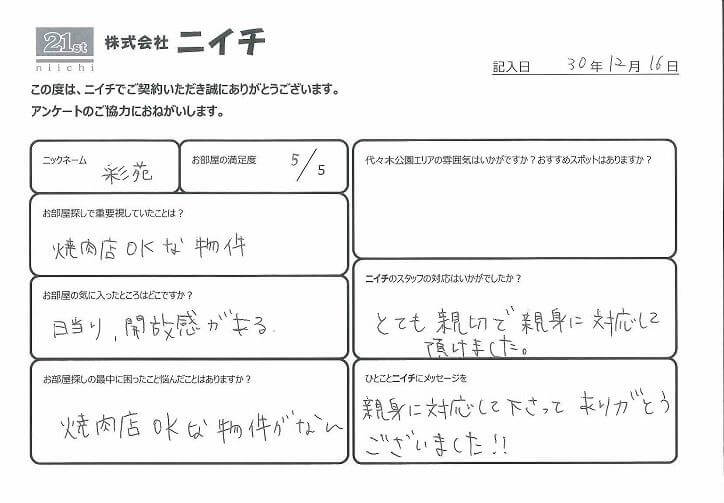 21st
niichi
株式会社 ニイチ
記入日 30年12月16日
この度は、ニイチでご契約いただき誠にありがとうございます。
アンケートのご協力におねがいします。
ニックネーム
彩苑
お部屋の満足度 5/5
お部屋探しで重要視していたことは?
焼肉店OKな物件
お部屋の気に入ったところはどこですか?
日当り,開放感がある.
お部屋探しの最中に困ったこと悩んだことはありますか?
焼肉店OKな物件がない
代々木公園エリアの雰囲気はいかがですか?おすすめスポットはありますか?
ニイチのスタッフの対応はいかがでしたか?
とても親切で親身に対応して
頂けました。
ひとことニイチにメッセージを
親身に対応して下さってありがとう
ございました!!